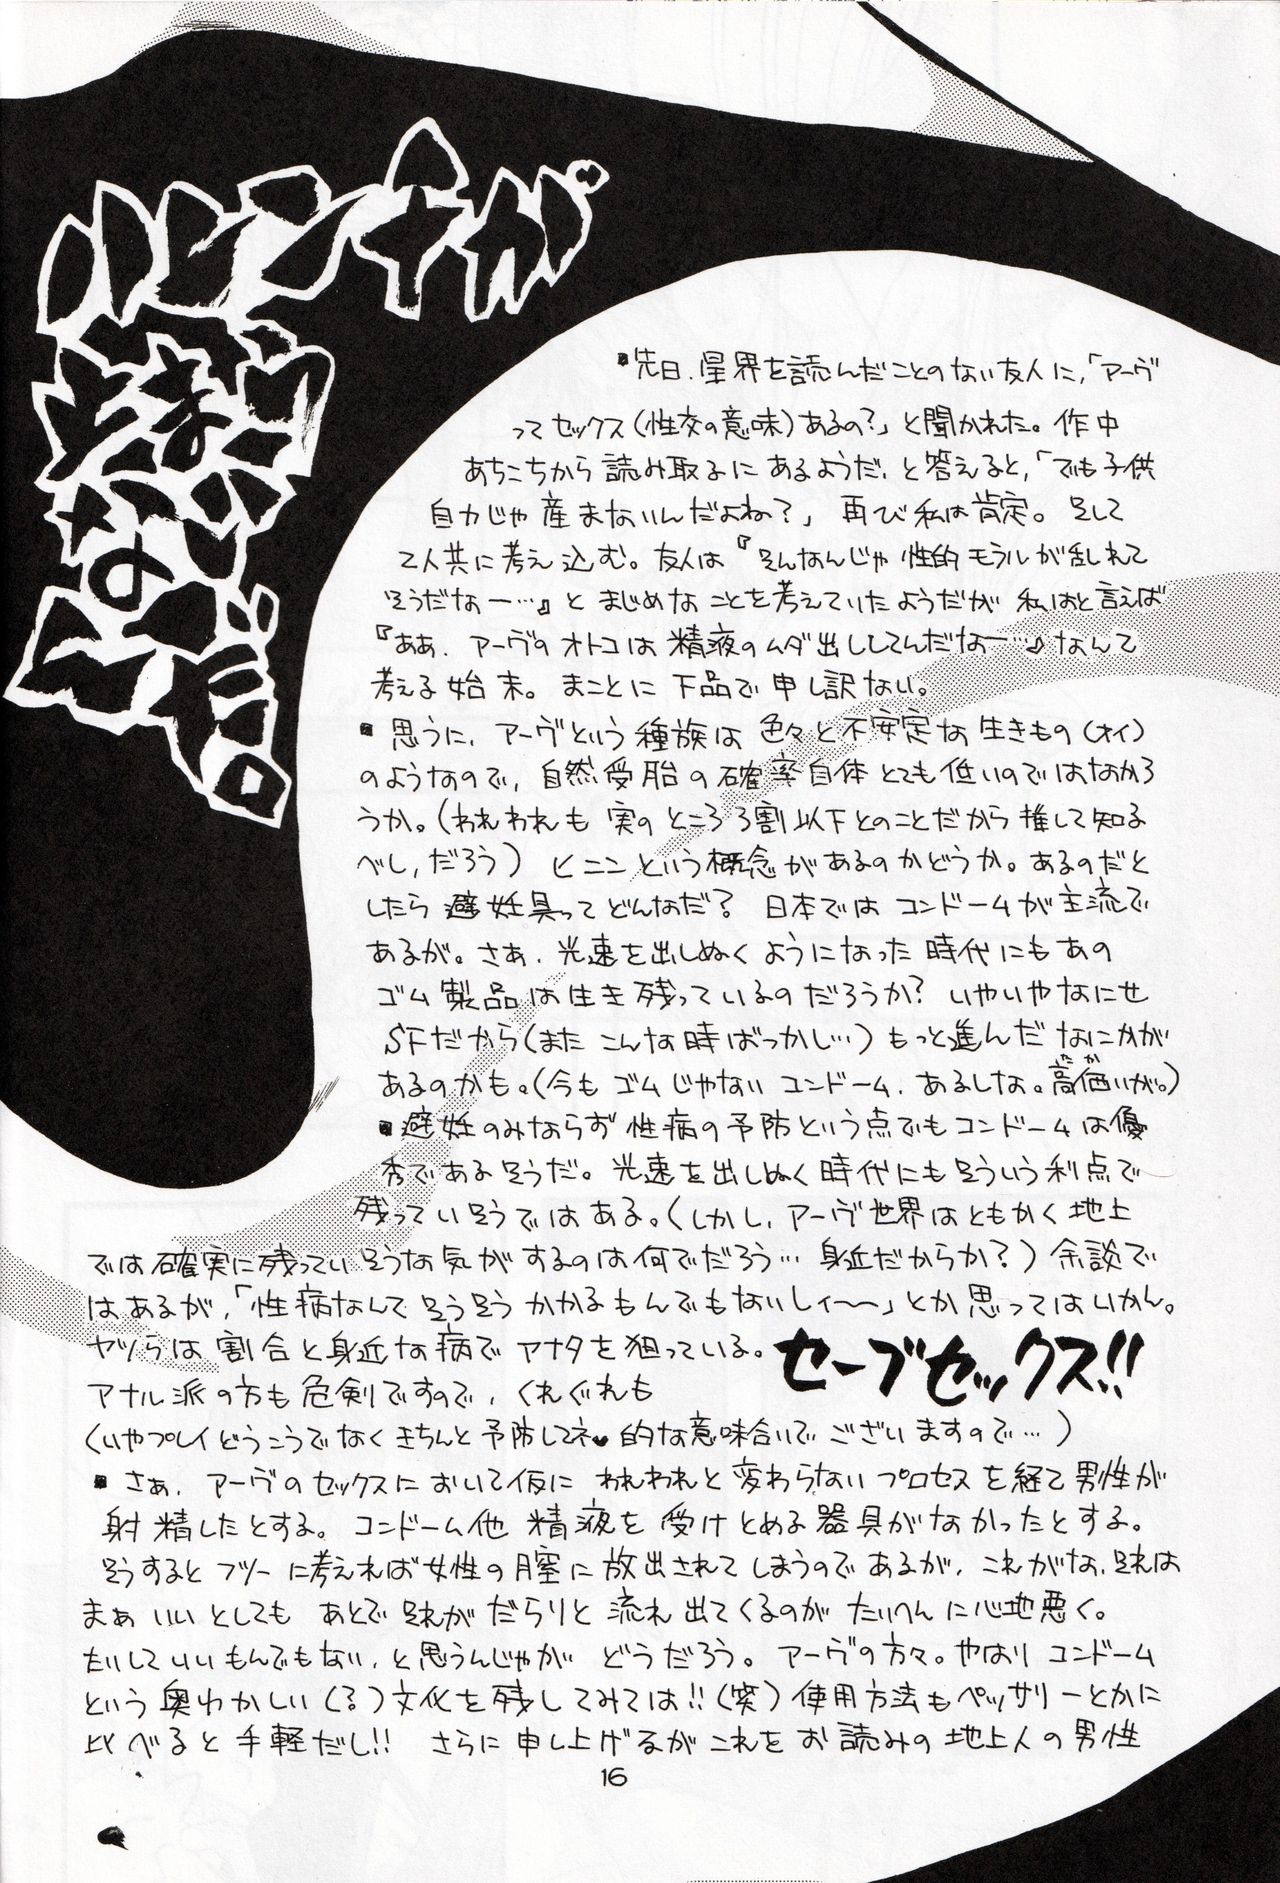 ハヒンナが
先日、星界を読んだことのない友人に、「アーヴ
ってセックス(性交の意味)あるの?」と聞かれた。作中
あちこちから読み取るにあるようだ、と答えると、「でも子供
自力じゃ産まないんだよね?」再び私は肯定。そして
2人共に考え込む。友人は『そんなんじゃ性的モラルが乱れて
そうだなー…』とまじめなことを考えていたようだが私はと言えば
『ああ、アーヴのオトコは精液のムダ出ししてんだなー…』なんて
考える始末。まことに下品で申し訳ない。
■思うに、アーヴという種族は色々と不安定な生きもの(オイ)
のようなので、自然受胎の確率自体とても低いのではなかろ
うか。(われわれも実のところ3割以下とのことだから推して知る
べし、だろう)ヒニンという概念があるのかどうか。あるのだと
したら避妊具ってどんなだ?日本ではコンドームが主流で
あるが。さぁ、光速を出しぬくようになった時代にもあの
ゴム製品は生き残っているのだろうか?いやいやなにせ
SFだから(またこんな時ばっかし…)もっと進んだなにかが
あるのかも。(今もゴムじゃないコンドーム、あるしな。高価いが。)
たか
■避妊のみならず性病の予防という点でもコンドームは優
秀であるそうだ。光速を出しぬく時代にもそういう利点で
残っていそうではある。(しかし、アーヴ世界はともかく地上
では確実に残っていそうな気がするのは何でだろう…身近だからか?)余談で
はあるが、「性病なんてそうそうかかるもんでもないしィ〜〜」とか思ってはいかん。
ヤツらは割合と身近な病でアナタを狙っている。
セーブセックス!!
アナル派の方も危剣ですので、くれぐれも
(いやプレイどうこうでなくきちんと予防してネ♥的な意味合いでございますので…)
■さぁ、アーヴのセックスにおいて仮にわれわれと変わらないプロセスを経て男性が
射精したとする。コンドーム他精液を受けとめる器具がなかったとする。
そうするとフツーに考えれば女性の膣に放出されてしまうのであるが、これがな、それは
まぁいいとしてもあとでそれがだらりと流れ出てくるのがたいへんに心地悪く。
たいしていいもんでもない、と思うんじゃがどうだろう。アーヴの方々。やはりコンドーム
という奥ゆかしい(?)文化を残してみては!!(笑)使用方法もペッサリーとかに
比べると手軽だし!!さらに申し上げるがこれをお読みの地上人の男性
16